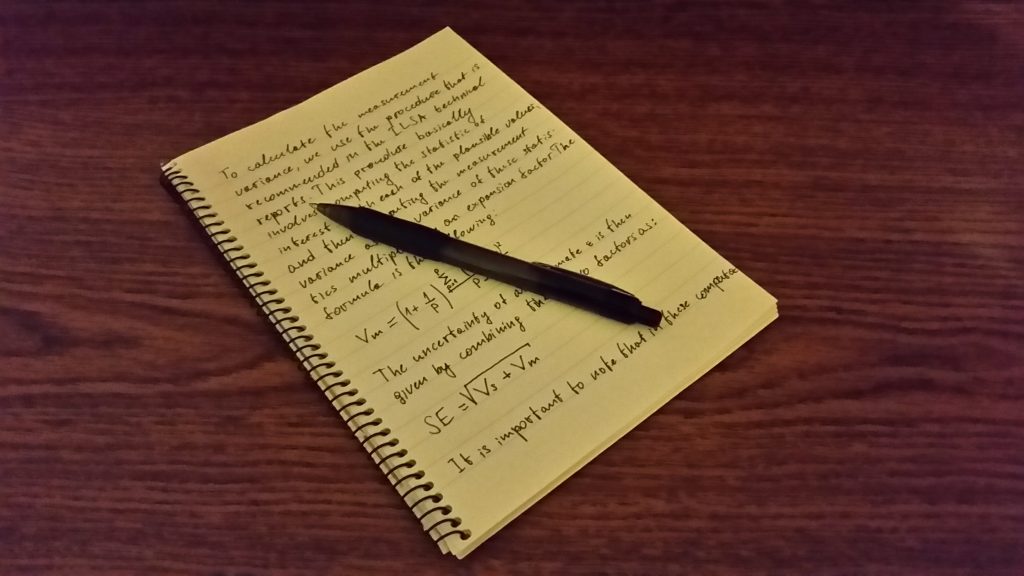 To calculate the measurement
variance, we use the procedure that is
recommended in the ILSA technical
reports. This procedure basically
computing the statistic of
interest each of the plausible values,
and then the measurement
variance variance of these statis-
tics an expansion factor. The
formula is following.
Vm = (1+ 1/P)
The uncertainty of ε is then
given by combining factors as:
SE = √Vs + Vm
It is important to note that in these